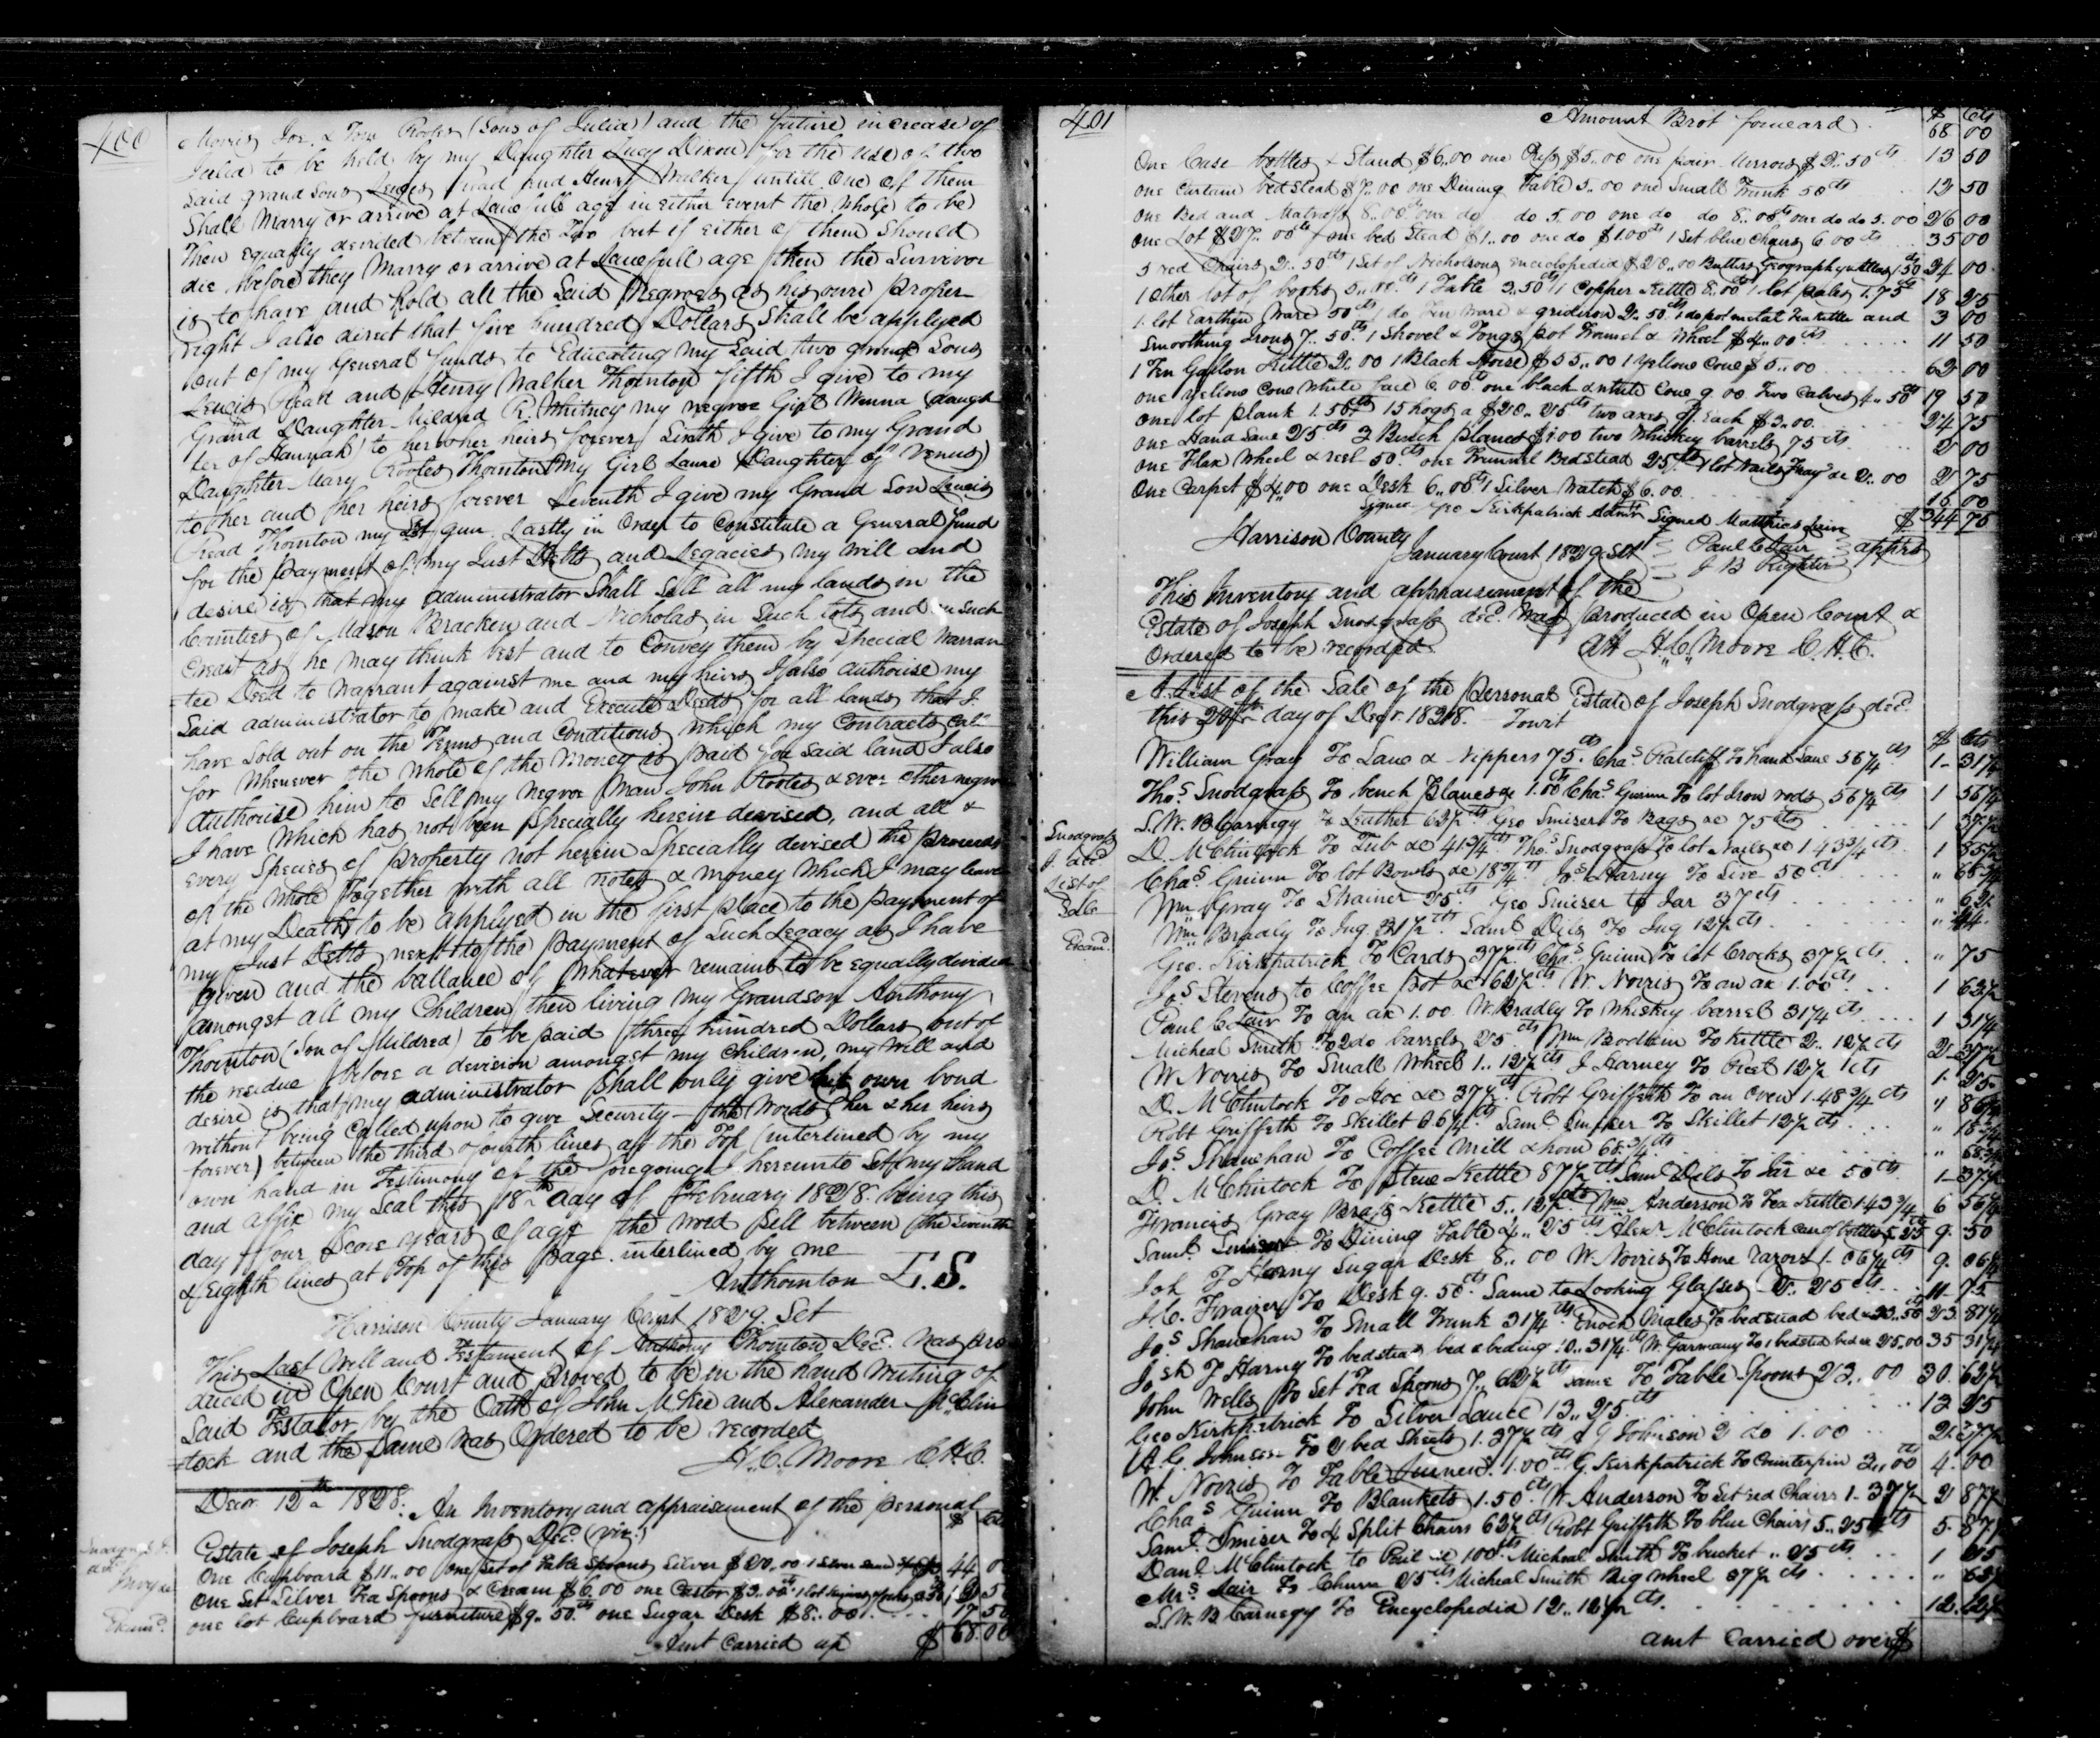 400
Morris Joe. & Tom Rootes (Sons of Julia) and the future increase of
Julia to be held by my Daughter Lucy Dixon for the use of two
said grand sons Lewis Read and Henry Walker untill one of them
Shall Marry or arrive at Lawfull age in either event the whole to be
Then equally devided between the Two but if either of them Should
die before they Marry or arrive at Lawfull age then the Survivor
is to have and hold all the Said Negroes as his own proper
right I also direct that five hundred Dollars shall be applyed
out of my General funds to Educating my Said two grand Sons
Lewis Read and Henry Walker Thornton fifth I give to my
Grand Daughter Mildred R. Whitney my negroe Girl Winna (daugh
ter of Hannah) to her & her heirs forever Sixth I give to my Grand
Daughter Mary Rootes Thornton My Girl Laura (Daughter of Venus)
to her and her heirs forever Seventh I give my Grand Son Lewis
Read Thornton my gun. Lastly in Order to Constitute a General fund
for the payment of my Just Debts and Legacies my will and
desire is that my administrator Shall Sell all my lands in the
Counties of Mason Bracken and Nicholas in Such lots and on Such
Credit as he may think best and to Convey them by Special Warran
=tee Deed to warrant against me and my heirs I also authorise my
Said administrator to make and Execute Deeds for all lands that I
have Sold out on the Terms and Conditions which my Contracts Call
for Whenever the whole of the money is paid for said land I also
authorise him to Sell my negroe man John Rootes & ever other negroe
I have which has not been Specially herein devised, and all &
every Species of property not herein Specially devised the proceeds
of the whole Together with all notes & money which I may leave
at my Death to be applyed in the first place to the payment of
my Just Debts next to the payment of Such Legacy as I have
given and the ballance of whatever remains to be equally divided
amongst all my Children then living my Grandson Anthony
Thornton (Son of Mildred) to be paid three hundred Dollars out of
the residue before a devision amongst my children, my will and
desire is that my administrator Shall only give his own bond
without being Called upon to give Security - the words (her & her heirs
forever) between the third & fourth lines at the Top interlined by my
own hand in Testimony of the foregoing I hereunto Set my hand
and affix my Seal this 18th day of February 1828. being this
day four Score years of age the word Sell between the Seventh
& Eighth lines at Top of this page interlined by me
Ant thornton L.S.
Harrison County January Court 1829. Sct
This Last Will and Testament of Anthony Thornton Decd. was pro
duced in Open Court and proved to be in the hand writing of
Said Testator by the Oath of John McKee and Alexander McClin
=tock and the Same was Ordered to be recorded
H.C. Moore C.H.C.
Decr. 12th 1828. An Inventory and appraisement of the personal
Estate of Joseph Snodgrass Decd. (viz.) $ cts
One Cupboard $11..00 one Set of Table Spoons Silver $20..00 44 00
One Set Silver Tea Spoons & Cream $6.00 one Castor $3..00
one lot Cupboard furniture $9..50cts one Sugar Desk $8..00 17 50
Amt Carried up $ 68.00
Examd.
401
Amount Brot forward $ cts 68 00
One Case bottles & Stand $6.00 one Press $5.00 one pair Mirrors $2..50cts 13 50
one Curtain bedstead $7..00 one Dining Table 5..00 one Small Trunk 50cts 12 50
one Bed and Matrass 8..00cts one do do 5.00 one do do 8..00cts one do do 5.00 26 00
one Lot $27..00cts one bed Stead $1..00 one do $1.00cts 1 Set blue Chairs 6 00cts 35 00
5 red Chairs 2..50cts 1 Set of Nicholsons encyclopedia $20..00 Butlers Geography & Atlas 1.50 24 00
1 Other lot of books 5..00cts 1 Table 2..50cts 1 Copper Kettle 8..00cts 1 lot pales 1.75cts 18 25
1 lot Earthen Ware 50cts 1 do Tin ware & gridiron 2..50cts 1 do pot mettal Tea Kettle and 3 00
Smoothing Irons 7..50cts 1 Shovel & Tongs pot Tramel & Wheel $4..00cts 11 50
1 Ten Gallon Kettle 2.00 1 Black Horse $55..00 1 yellow Cow $5..00 62 00
one yellow Cow White face 6.00cts one black & white Cow 9.00 Two Calves 4..50cts 19 50
one lot plank 1.50cts 15 hogs a $20..25cts two axes Each $3..00. 24 75
one Hand Saw 25cts 3 Bench planes $1.00 two Whiskey barrels 75cts 2 00
one Flax Wheel & reel 50cts one Trunnel Bedstead 25cts 1 lot Nails Tray &c 2..00 2 75
One Carpet $4.00 one Desk 6..00cts 1 Silver Watch $6.00. 16 00
Signed Geo Kirkpatrick Admr Signed Matthias $344 75
Harrison County Paul Clair appra
January Court 1829. Sct J B Righter
This Inventory and appraisement of the
Estate of Joseph Snodgrass decd. was produced in Open Court &
Ordered to be recorded Att H.C. Moore C.H.C.
A List of the Sale of the Personal Estate of Joseph Snodgrass decd
this day of Decr. 1828. Towit $ cts
William Gray To Saw & Nippers 75cts. Chas Ratcliff To hand Saw 56¼cts 1- 31¼
Thos Snodgrass To bench planes &c 1.00cts Chas. Guinn To lot Iron rods 56¼cts 1 56¼
S.W. B Carnegy To Leather 62½cts Geo Smizer To Bags &c 75cts 1 37½
Snodgrass
J. decd
List of
Sale
Examd.
D. McClintock To Tub &c 41¾cts Thos. Snodgrass To lot Nails &c 1.43¾cts 1 85½
Chas. Guinn To lot Bowls &c 18¾cts Jas Harny To Sive 50cts " 68¾
Wm Gray To Strainer 25cts Geo Smizer to Jar 37cts " 62
Wm. Bradly To Jug 31½cts Saml Dils To Jug 12½cts " 44
Geo. Kirkpatrick To Cards 37½cts Chas Guinn To lot Crocks 37½cts " 75
Jos Stevens to Coffee pot &c 62½cts W. Norris To an ax 1.00cts 1 62½
Paul Clair To an ax 1.00 W. Bradly To Whiskey barrel 31¼cts 1 31¼
Micheal Smith To 2 do barrels 25cts Wm Bodkin To Kettle 2..12½cts 2 37½
W. Norris To Small Wheel 1..12½cts J Harney To Reel 12½cts 1. 25
D. McClintock To Hoe &c 37½cts Robt Griffith To an Oven 1.48¾cts
Robt Griffeth To Skillet 6¼cts Saml. Smizer To Skillet 12½cts " 18¾
Jos Shanehan To Coffee Mill & horn 68¾cts " 68¾
D. McClintock To Stew Kettle 87½cts Saml Dils To Jar &c 50cts 1-37½
Francis Gray Brass Kettle 5..12½cts Wm Anderson To Tea Kettle 1.43¾ 6 56¼
Saml. Smizer To Dining Table 4..25cts Alexr. McClintock Case of bottles 5.25cts 9. 50
Jos J Harny Sugar Desk 8..00 W. Norris To Hone razors 1-06¼cts 9. 06¼
J.C. Frazier To Desk 9.50cts Same to Looking Glasses 2..25cts 11-75
Jos Shanehan To Small Trunk 31¼cts Enoch Males To bedstead bed &c 23..50cts 23.81¼
Josh J Harny To bedstead bed & beding 10..31¼cts W. Garmany To 1 bedsted bed &c 25.00 35 31¼
John Wells To Set Tea Spoons 7..62½cts Same To Table Spoons 23..00 30.62½
Geo Kirkpatrick To Silver Ladle 13..25cts 13 25
A.G. Johnson To 2 bed Sheets 1.37½cts A G Johnson 2 do 1.00 2.37½
W. Norris To Table 1.00cts G. Kirkpatrick To Counterpin 3..00cts 4.00
Chas Guinn To Blankets 1.50cts W Anderson To Set red Chairs 1-37½ 2 87½
Saml. Smizer To 4 Split Chairs 62½cts Robt Griffeth To blue Chairs 5..25cts 5.87½
Danl McClintock to Pail &c 100cts. Micheal Smith To bucket ..25cts 1 25
Mrs. Lair To Churn 25cts Micheal Smith Big Wheel 37½cts " 62½
S.W. B Carnegy To Encyclopedia 12..12½cts 12.12½
amt Carried over $